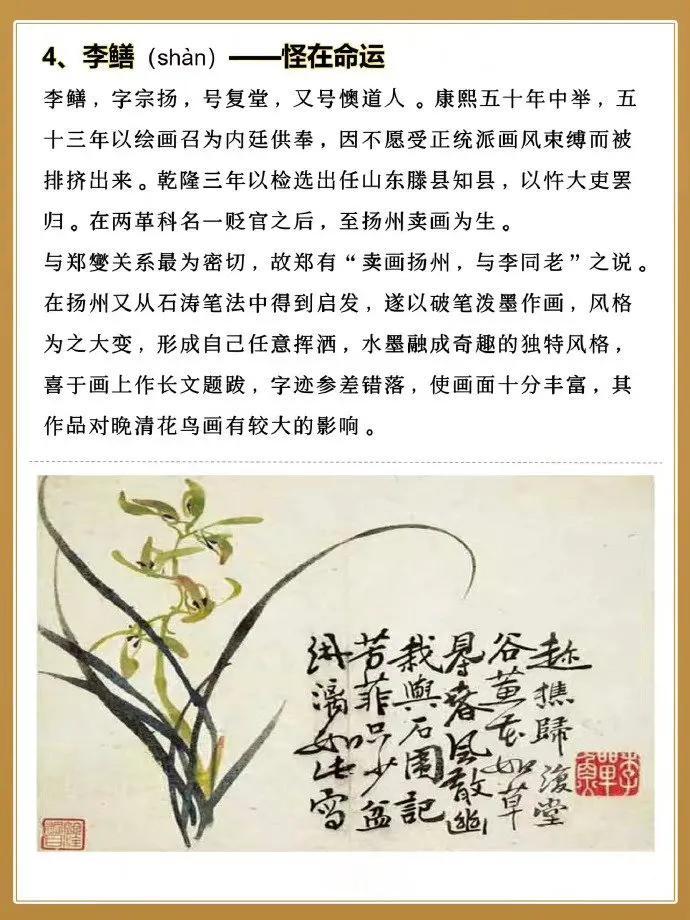 4、李鳝（shàn）——怪在命运
李鳝，字宗扬，号复堂，又号懊道人。康熙五十年中举，五
十三年以绘画召为内廷供奉，因不愿受正统派画风束缚而被
排挤出来。乾隆三年以检选出任山东滕县知县，以忤大吏罢
归。在两革科名一贬官之后，至扬州卖画为生。
与郑燮关系最为密切，故郑有“卖画扬州，与李同老”之说。
在扬州又从石涛笔法中得到启发，遂以破笔泼墨作画，风格
为之大变，形成自己任意挥洒，水墨融成奇趣的独特风格，
喜于画上作长文题跋，字迹参差错落，使画面十分丰富，其
作品对晚清花鸟画有较大的影响。
淋漓如此寫
芳菲只少盆
栽與石圍記
㝵春風散幽
谷蕙花如草
趂樵歸 復堂
李鱓